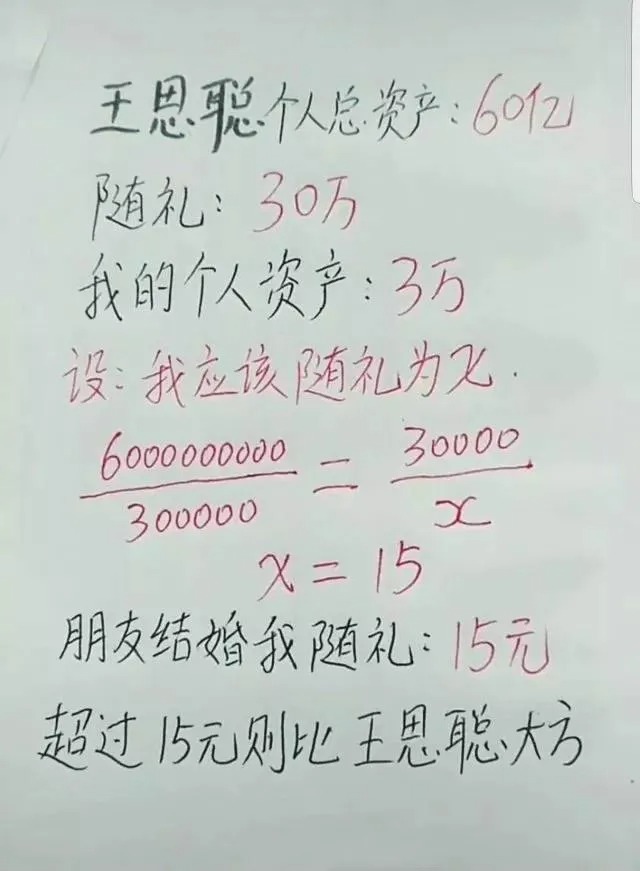 王思聪个人总资产:60亿
随礼:30万
我的个人资产:3万
设:我应该随礼为x.
6000000000/300000 = 30000/x
x=15
朋友结婚我随礼:15元
超过15元则比王思聪大方